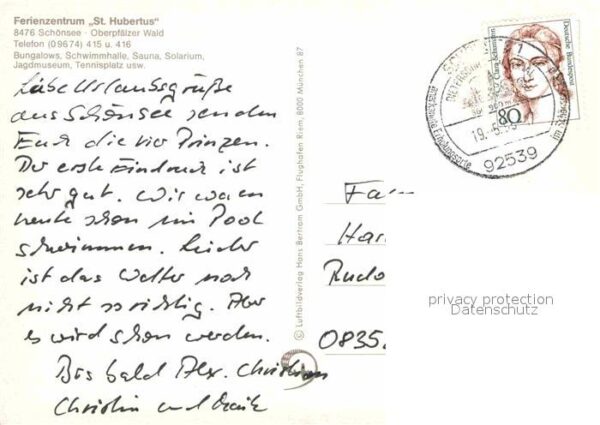 Ferienzentrum „St. Hubertus"
8476 Schönsee · Oberpfälzer Wald
Telefon (09674) 415 u. 416
Bungalows, Schwimmhalle, Sauna, Solarium,
Jagdmuseum, Tennisplatz usw.
Liebe Urlaubsgrüße
aus Schönsee senden
Euch die vier Prinzen.
Der erste Eindruck ist
sehr gut. Wir waren
heute schon im Pool
schwimmen. Leider
ist das Wetter noch
nicht so richtig. Aber
es wird schon werden.
Bis bald Alex. Christian
Christin und
© Luftbildverlag Hans Bertram GmbH, Flughafen Riem, 8000 München 87
Deutsche Bundespost
Clara Schumann
80
92539
Fam
Har
Rudo
0835
privacy protection
Datenschutz